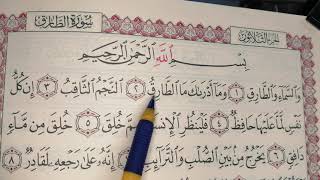 سُورَةُ الطَّارِقِ
الجزء الثلاثون
بِسْمِ اللَّهِ الرَّحْمَٰنِ الرَّحِيمِ
وَالسَّمَاءِ وَالطَّارِقِ ١ وَمَا أَدْرَىٰكَ مَا الطَّارِقُ ٢ النَّجْمُ الثَّاقِبُ ٣ إِن كُلُّ
نَفْسٍ لَّمَّا عَلَيْهَا حَافِظٌ ٤ فَلْيَنظُرِ الْإِنسَٰنُ مِمَّ خُلِقَ ٥ خُلِقَ مِن مَّاءٍ
دَافِقٍ ٦ يَخْرُجُ مِن بَيْنِ الصُّلْبِ وَالتَّرَائِبِ ٧ إِنَّهُ عَلَىٰ رَجْعِهِ لَقَادِرٌ ٨